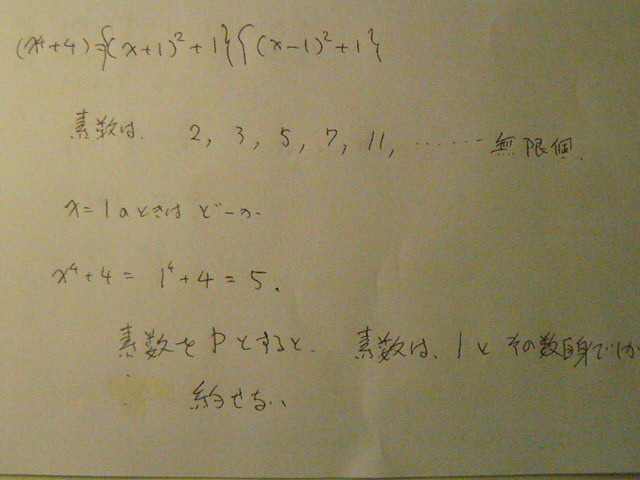 (x⁴+4)={(x+1)²+1}{(x-1)²+1}
素数は、 2, 3, 5, 7, 11, ……… 無限個.
x=1のときは どーか
x⁴+4 = 1⁴+4 = 5.
素数を Pとすると、 素数は、1と その数自身でしか
約せない